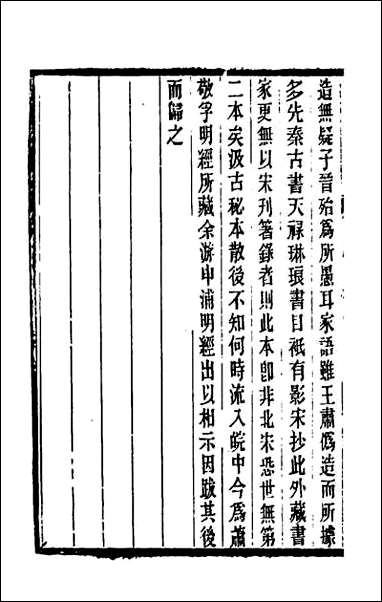 造無疑子晉殆爲所愚耳家語雖王肅僞造而所據
多先秦古書天祿琳琅書目祇有影宋抄此外藏書
家更無以宋刊箸錄者則此本卽非北宋恐世無第
二本矣汲古秘本散後不知何時流入皖中今爲蕭
敬孚明經所藏余游申浦明經出以相示因跋其後
而歸之